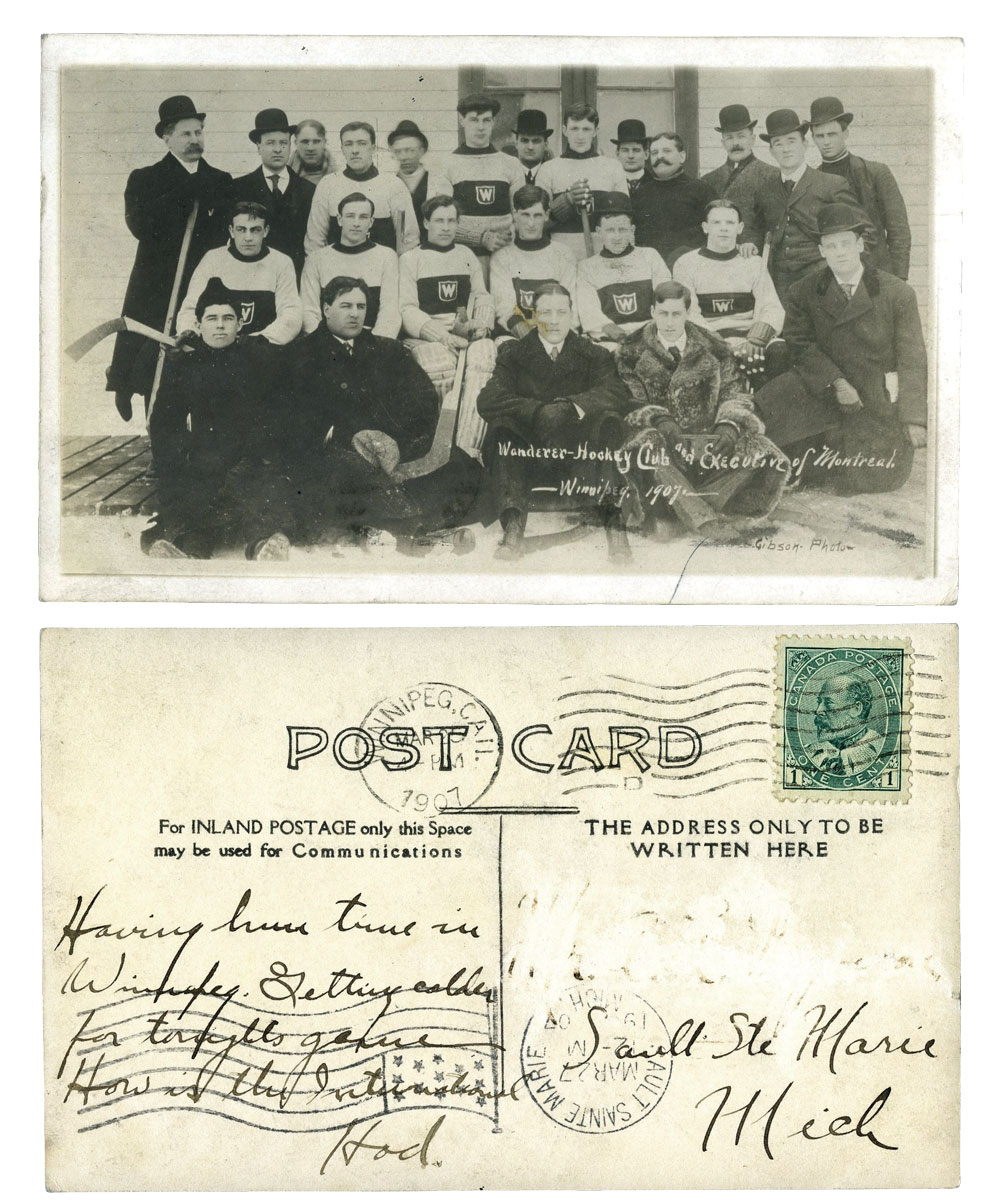 W
W
W
W
W
Wanderer-Hockey Club and Executive of Montreal.
—Winnipeg. 1907.—
Gibson. Photo
WINNIPEG, CAN.
MAR
PM
1907
POST CARD
CANADA POSTAGE
1 ONE CENT 1
For INLAND POSTAGE only this Space
may be used for Communications
THE ADDRESS ONLY TO BE
WRITTEN HERE
Having time in
Winnipeg. Getting colder
for tonights game
How is the International
Hod.
Sault Ste Marie
Mich
SAULT SAINTE MARIE
MICH.
MAR 27
12-M